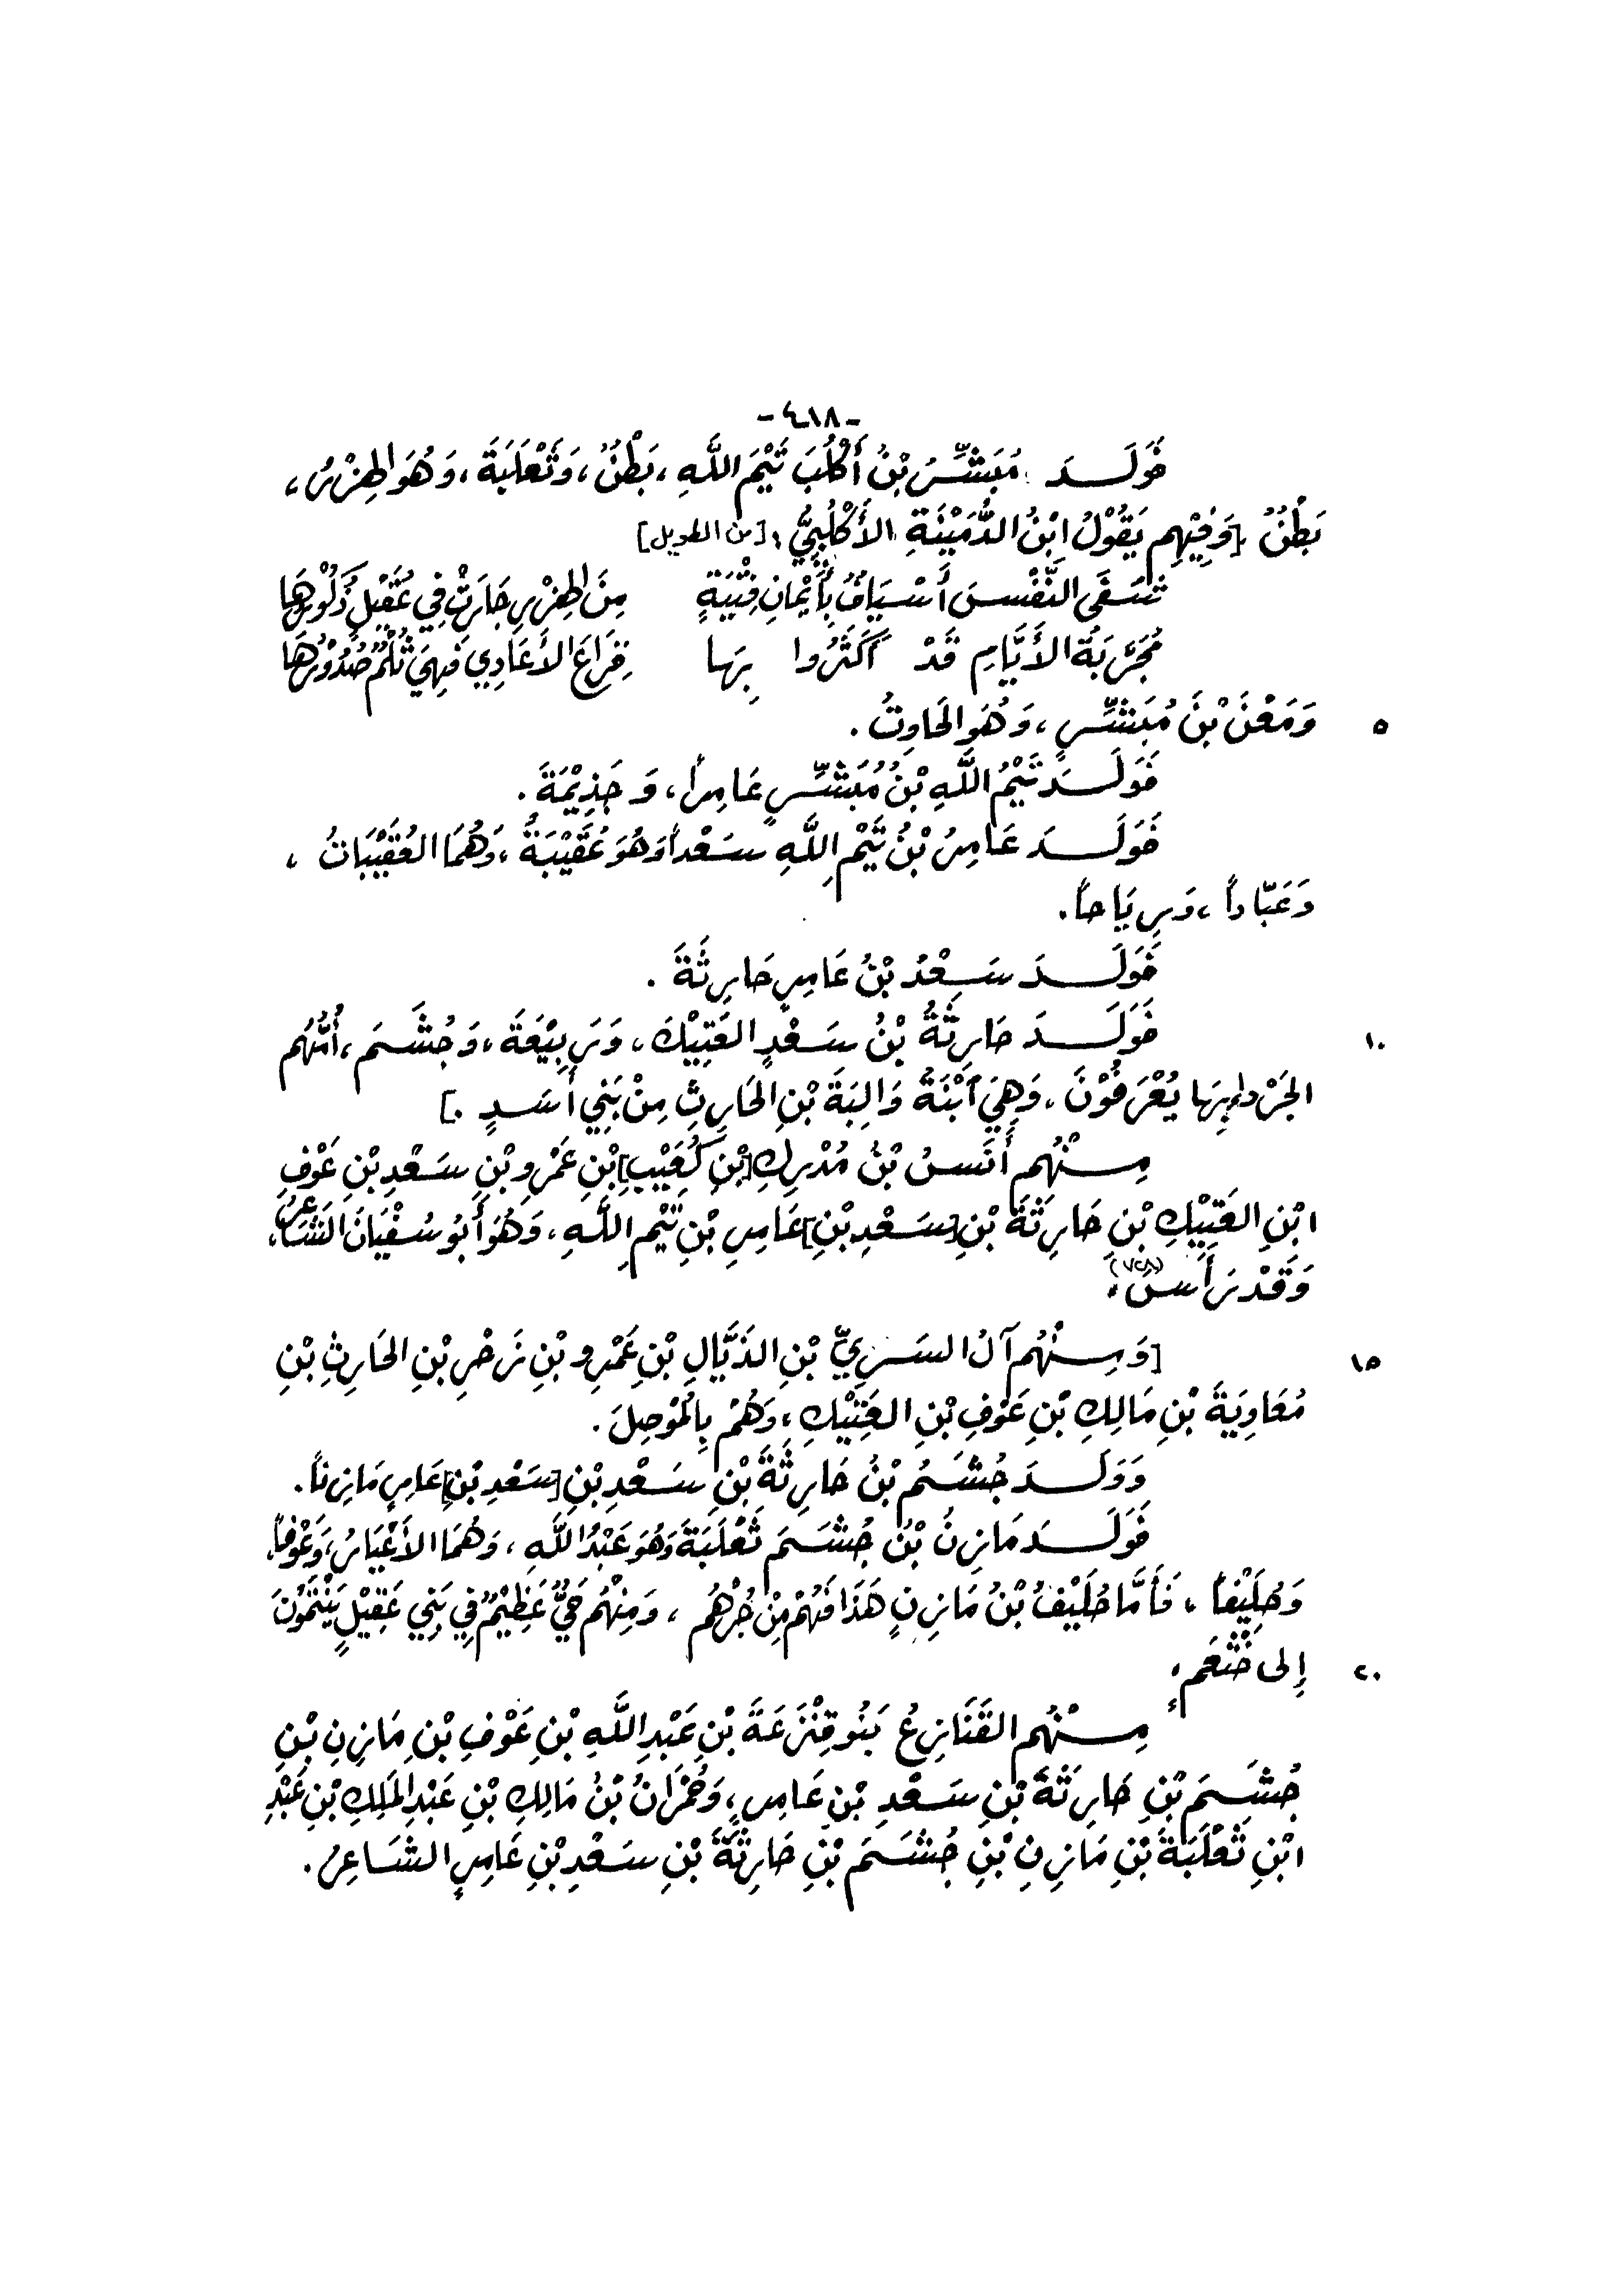 -٤١٨-
فَوَلَـدَ مُبَشِّرُ بْنُ أَكْلُبَ تَيْمَ اللَّهِ، بَطْنٌ، وَثَعْلَبَةَ، وَهُوَ الهِزْرُ،
بَطْنٌ [وَفِيْهِم يَقُوْلُ ابْنُ الدُّمَيْنَةِ الأَكْلُبِيُّ: [من الطويل]
تَشفَى النَّفْسَ أَسْيَافٌ بِأَيْمَانِ فِتْيَةٍ مِنَ الهِزْرِ جَارَتْ فِي عُقَيْلٍ ذُلُوْرُهَا
مُجَرَّبَةُ الأَيَّامِ قَدْ أَكْثَرُوا بِهَا قِرَاعَ الأَعَادِي فَهِيَ ثُلْمٌ صُدُوْرُهَا
٥ وَمَعْنَ بْنَ مُبَشِّرٍ، وَهُوَ الحَاوِتُ.
فَوَلَـدَ تَيْمُ اللَّهِ بْنُ مُبَشِّرٍ عَامِراً، وَجَذِيْمَةَ.
فَوَلَـدَ عَامِرُ بْنُ تَيْمِ اللَّهِ سَعْداً وَهُوَ عُقَيْبَةُ، وَهُمَا العُقَيْبَاتُ،
وَعَبّاداً، وَرِيَاحاً.
فَوَلَـدَ سَعْدُ بْنُ عَامِرٍ حَارِثَةَ.
١٠ فَوَلَـدَ حَارِثَةُ بْنُ سَعْدٍ العَتِيْكَ، وَرَبِيْعَةَ، وَجُشَمَ، أُمُّهُم
الجَرْداءُ بِهَا يُعْرَفُوْنَ، وَهِيَ ابْنَةُ وَالِبَةَ بْنِ الحَارِثِ مِنْ بَنِي أَسَدٍ.]
مِـنْهُم أَنَسُ بْنُ مُدْرِكِ [بْنِ كُعَيْبِ] بْنِ عَمْرِو بْنِ سَعْدِ بْنِ عَوْفِ
ابْنِ العَتِيْكِ بْنِ حَارِثَةَ بْنِ [سَعْدِ بْنِ] عَامِرِ بْنِ تَيْمِ اللَّهِ، وَهُوَ أَبُو سُفْيَانَ الشَّاعِرُ،
وَقَدْ رَأَسَ (٧٢٨).
١٥ [وَمِـنْهُم آلُ السَرِيِّ بْنِ الذَيَّالِ بْنِ عَمْرِو بْنِ زَحْرِ بْنِ الحَارِثِ بْنِ
مُعَاوِيَةَ بْنِ مَالِكِ بْنِ عَوْفِ بْنِ العَتِيْكِ، وَهُمْ بِالمَوْصِلَ.
وَوَلَـدَ جُشَمُ بْنُ حَارِثَةَ بْنِ سَعْدِ بْنِ [سَعْدِ بْنِ] عَامِرٍ مَازِناً.
فَوَلَـدَ مَازِنُ بْنُ جُشَمَ ثَعْلَبَةَ وَهُوَ عَبْدُ اللَّهِ، وَهُمَا الأَعْيَارُ، وَعَوْفاً،
وَحُلَيْفاً، فَأَمَّا حُلَيْفُ بْنُ مَازِنٍ هَذَا فَهُمْ مِنْ جُرْهُم، وَمِنْهُم حَيٌّ عَظِيْمٌ فِي بَنِي عَقِيْلٍ يَنْتَمُوْنَ
٢٠ إِلى خَثْعَمٍ.
مِـنْهُم القَنَازِعُ بَنُو قِنْزَعَةَ بْنِ عَبْدِ اللَّهِ بْنِ عَوْفِ بْنِ مَازِنِ بْنِ
جُشَمَ بْنِ حَارِثَةَ بْنِ سَعْدِ بْنِ عَامِرٍ، وَحُمْرَانُ بْنُ مَالِكِ بْنِ عَبْدِ المَلِكِ بْنِ عَبْدِ
ابْنِ ثَعْلَبَةَ بْنِ مَازِنِ بْنِ جُشَمَ بْنِ حَارِثَةَ بْنِ سَعْدِ بْنِ عَامِرٍ الشَاعِرُ.